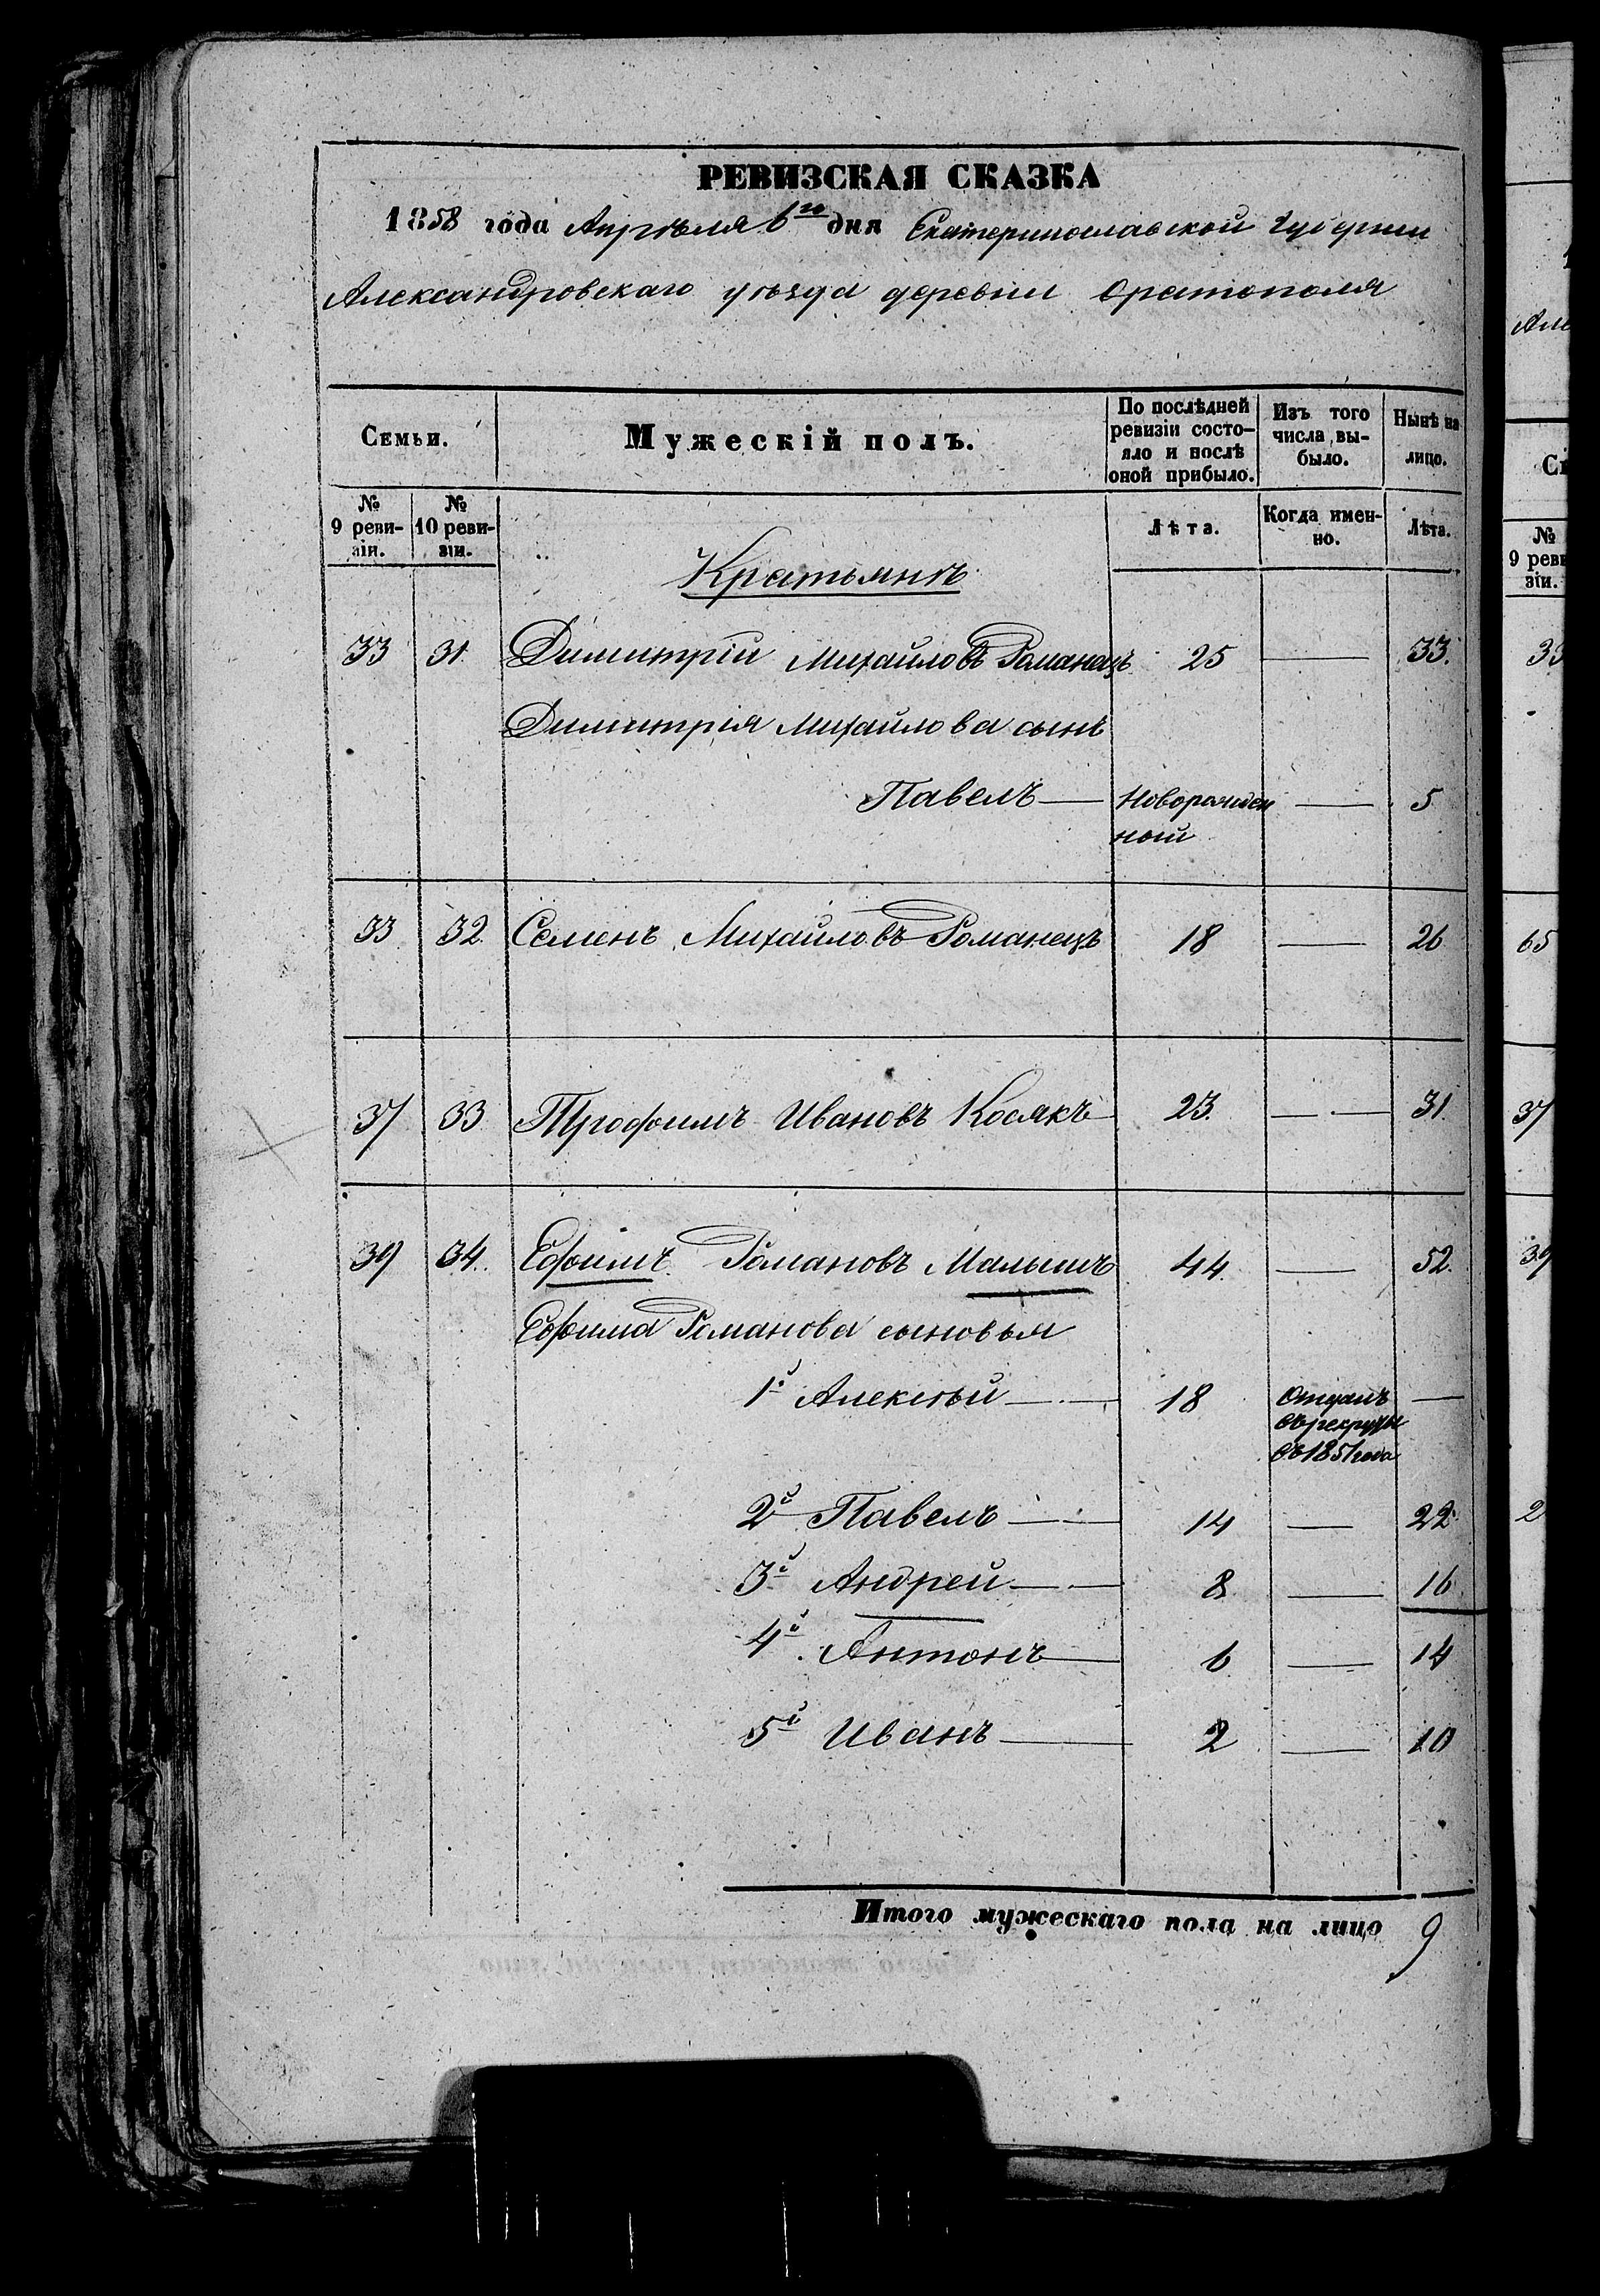 РЕВИЗСКАЯ СКАЗКА
1858 года Апрѣля 6го дня Екатеринославской губернии
Александровскаго уѣзда деревни Оратополя
Семьи.
Мужескій полъ.
По послѣдней ревизіи состояло и послѣ оной прибыло.
Изъ того числа выбыло.
Нынѣ на лицо.
№ 9 ревизіи.
№ 10 ревизіи.
Лѣта.
Когда именно.
Лѣта.
33 31. Димитрій Михайловъ Романецъ 25 — 33.
Димитрія Михайлова сынъ
Павелъ — Новорожден — 5
ной
33 32. Семенъ Михайловъ Романецъ 18 — 26
37 33 Трофимъ Ивановъ Косякъ 23. — 31.
39 34. Ефимъ Романовъ Малышъ 44. — 52.
Ефима Романова сыновья
1й Алексѣй — 18 Отданъ —
въ рекруты
въ 1851 года
2й Павелъ — 14 — 22
3й Андрей — 8 — 16
4й Антонъ — 6 — 14
5й Иванъ — 2 — 10
Итого мужескаго пола на лицо 9
Але
№
9 реви
зіи.
65
37
39
2